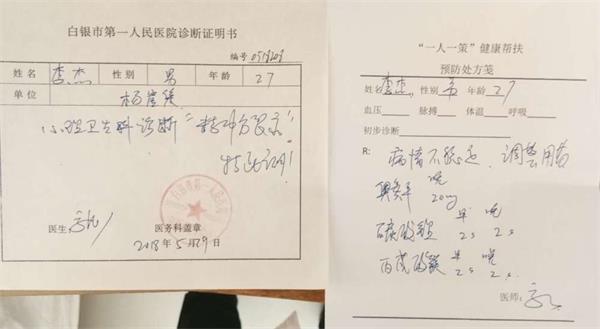 白银市第一人民医院诊断证明书
编号
姓名 李杰 性别 男 年龄 27
单位
心理卫生科诊断“精神分裂症”
特此证明!
医生:
医务科盖章
2018年5月29日
“一人一策”健康帮扶
预防处方笺
姓名 李杰 性别 男 年龄 27
血压 脉搏 体温 呼吸
初步诊断
R: 病情不稳定,调整用药
奥氮平 晚
20mg
碳酸锂 早 晚
2s 2s
丙戊酸镁 早 晚
2s 2s
医师: